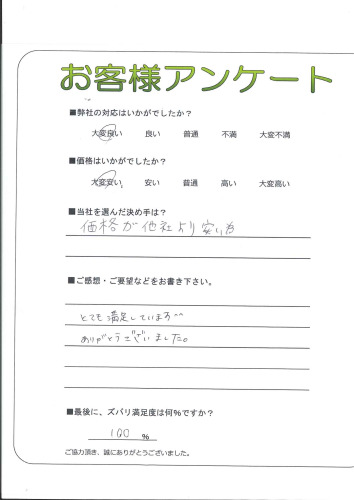 お客様アンケート
■弊社の対応はいかがでしたか？
大変良い 良い 普通 不満 大変不満
■価格はいかがでしたか？
大変安い 安い 普通 高い 大変高い
■当社を選んだ決め手は？
価格が他社より安い為
■ご感想・ご要望などをお書き下さい。
とても満足しています^^
ありがとうございました。
■最後に、ズバリ満足度は何%ですか？
100 %
ご協力頂き、誠にありがとうございました。